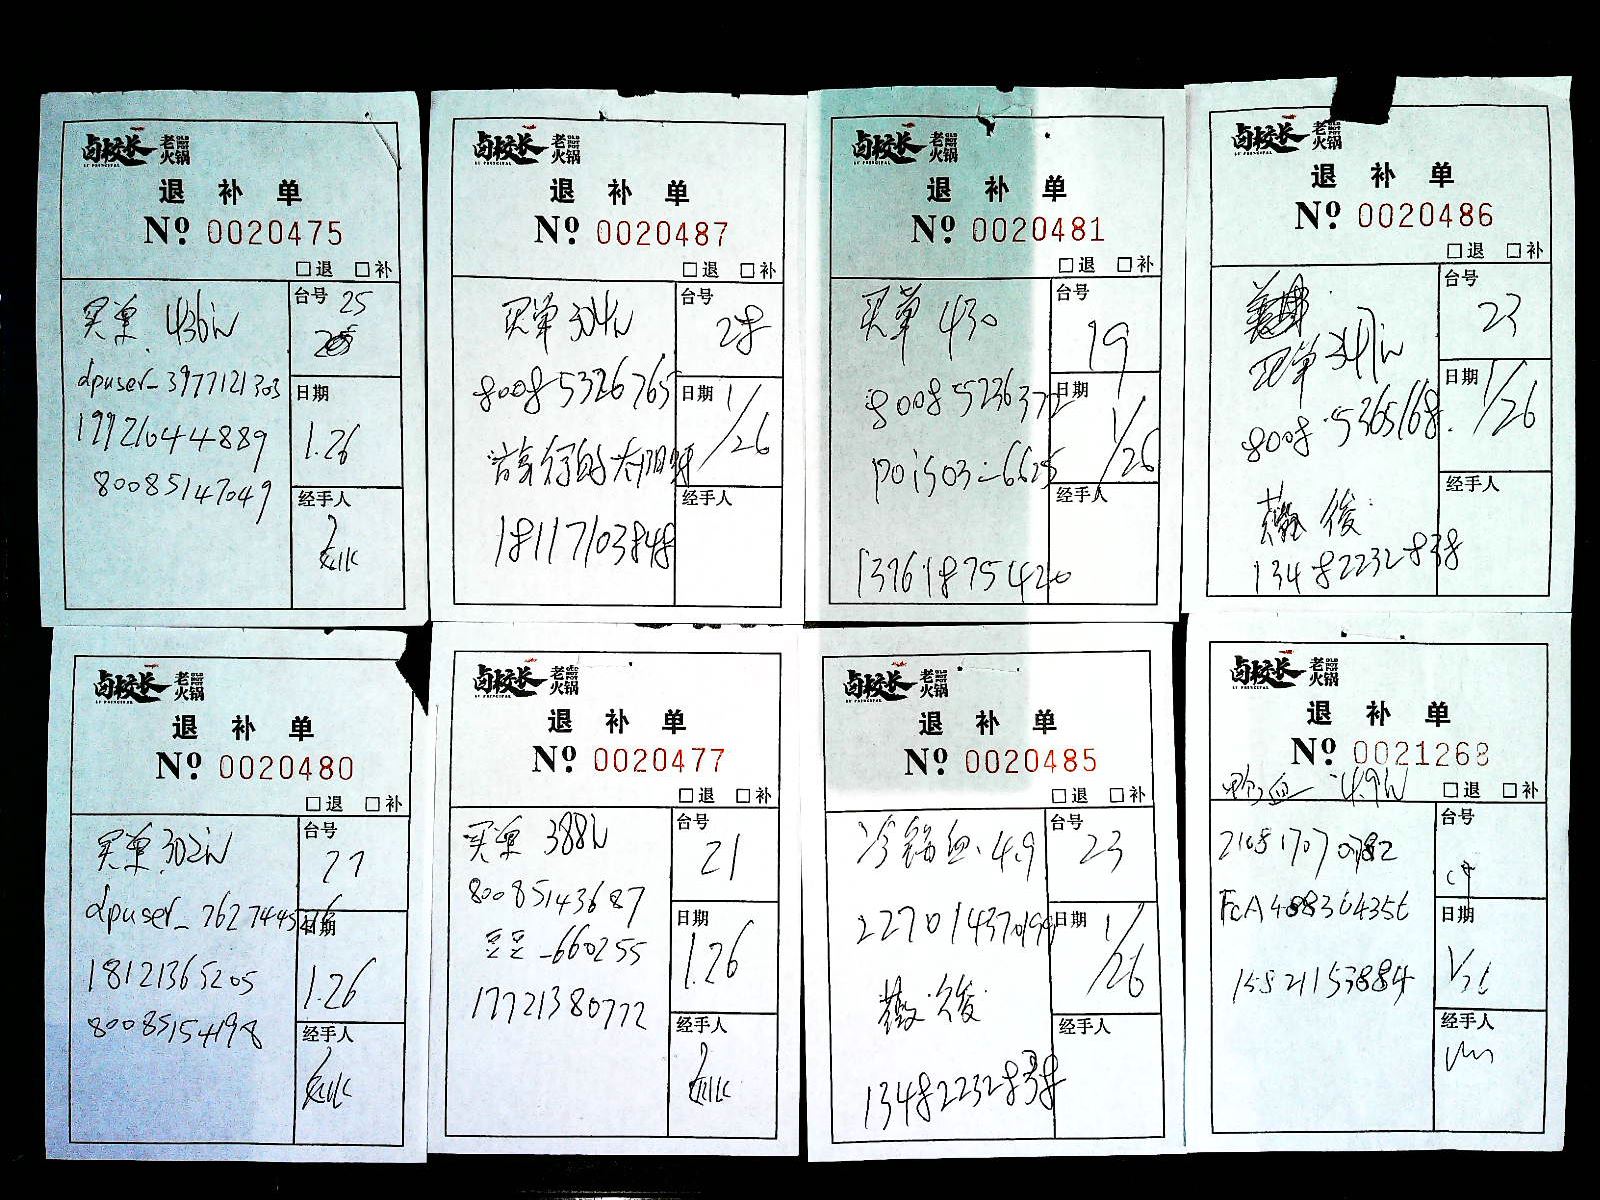 卤校长 老火锅
LU PRINCIPAL
退 补 单
Nº 0020475
□退 □补
买单 436元
台号 25
dpuser_3977121303
日期 1.26
19921044889
80085147049
经手人
卤校长 老火锅
LU PRINCIPAL
退 补 单
Nº 0020487
□退 □补
买单 304元
台号 28
8008 5326765
日期 1/26
经手人
18117103848
卤校长 老火锅
LU PRINCIPAL
退 补 单
Nº 0020481
□退 □补
买单 430
台号 19
8008 5236372
日期 1/26
poison3_6625
经手人
13761875420
卤校长 老火锅
LU PRINCIPAL
退 补 单
Nº 0020486
□退 □补
台号 23
买单 347元
日期 1/26
8008 5365168
经手人
俊
13482232838
卤校长 老火锅
LU PRINCIPAL
退 补 单
Nº 0020480
□退 □补
买单 302元
台号 27
日期 1.26
18121365205
80085154198
经手人
卤校长 老火锅
LU PRINCIPAL
退 补 单
Nº 0020477
□退 □补
买单 388元
台号 21
80085143687
豆豆_660255
日期 1.26
17721380772
经手人
卤校长 老火锅
LU PRINCIPAL
退 补 单
Nº 0020485
□退 □补
冷锅血 4.9
台号 23
227014370199
日期 1/26
俊
经手人
13482232838
卤校长 老火锅
LU PRINCIPAL
退 补 单
Nº 0021268
□退 □补
鸭血 4.9元
台号
210817070782
日期 1/26
15821153884
经手人